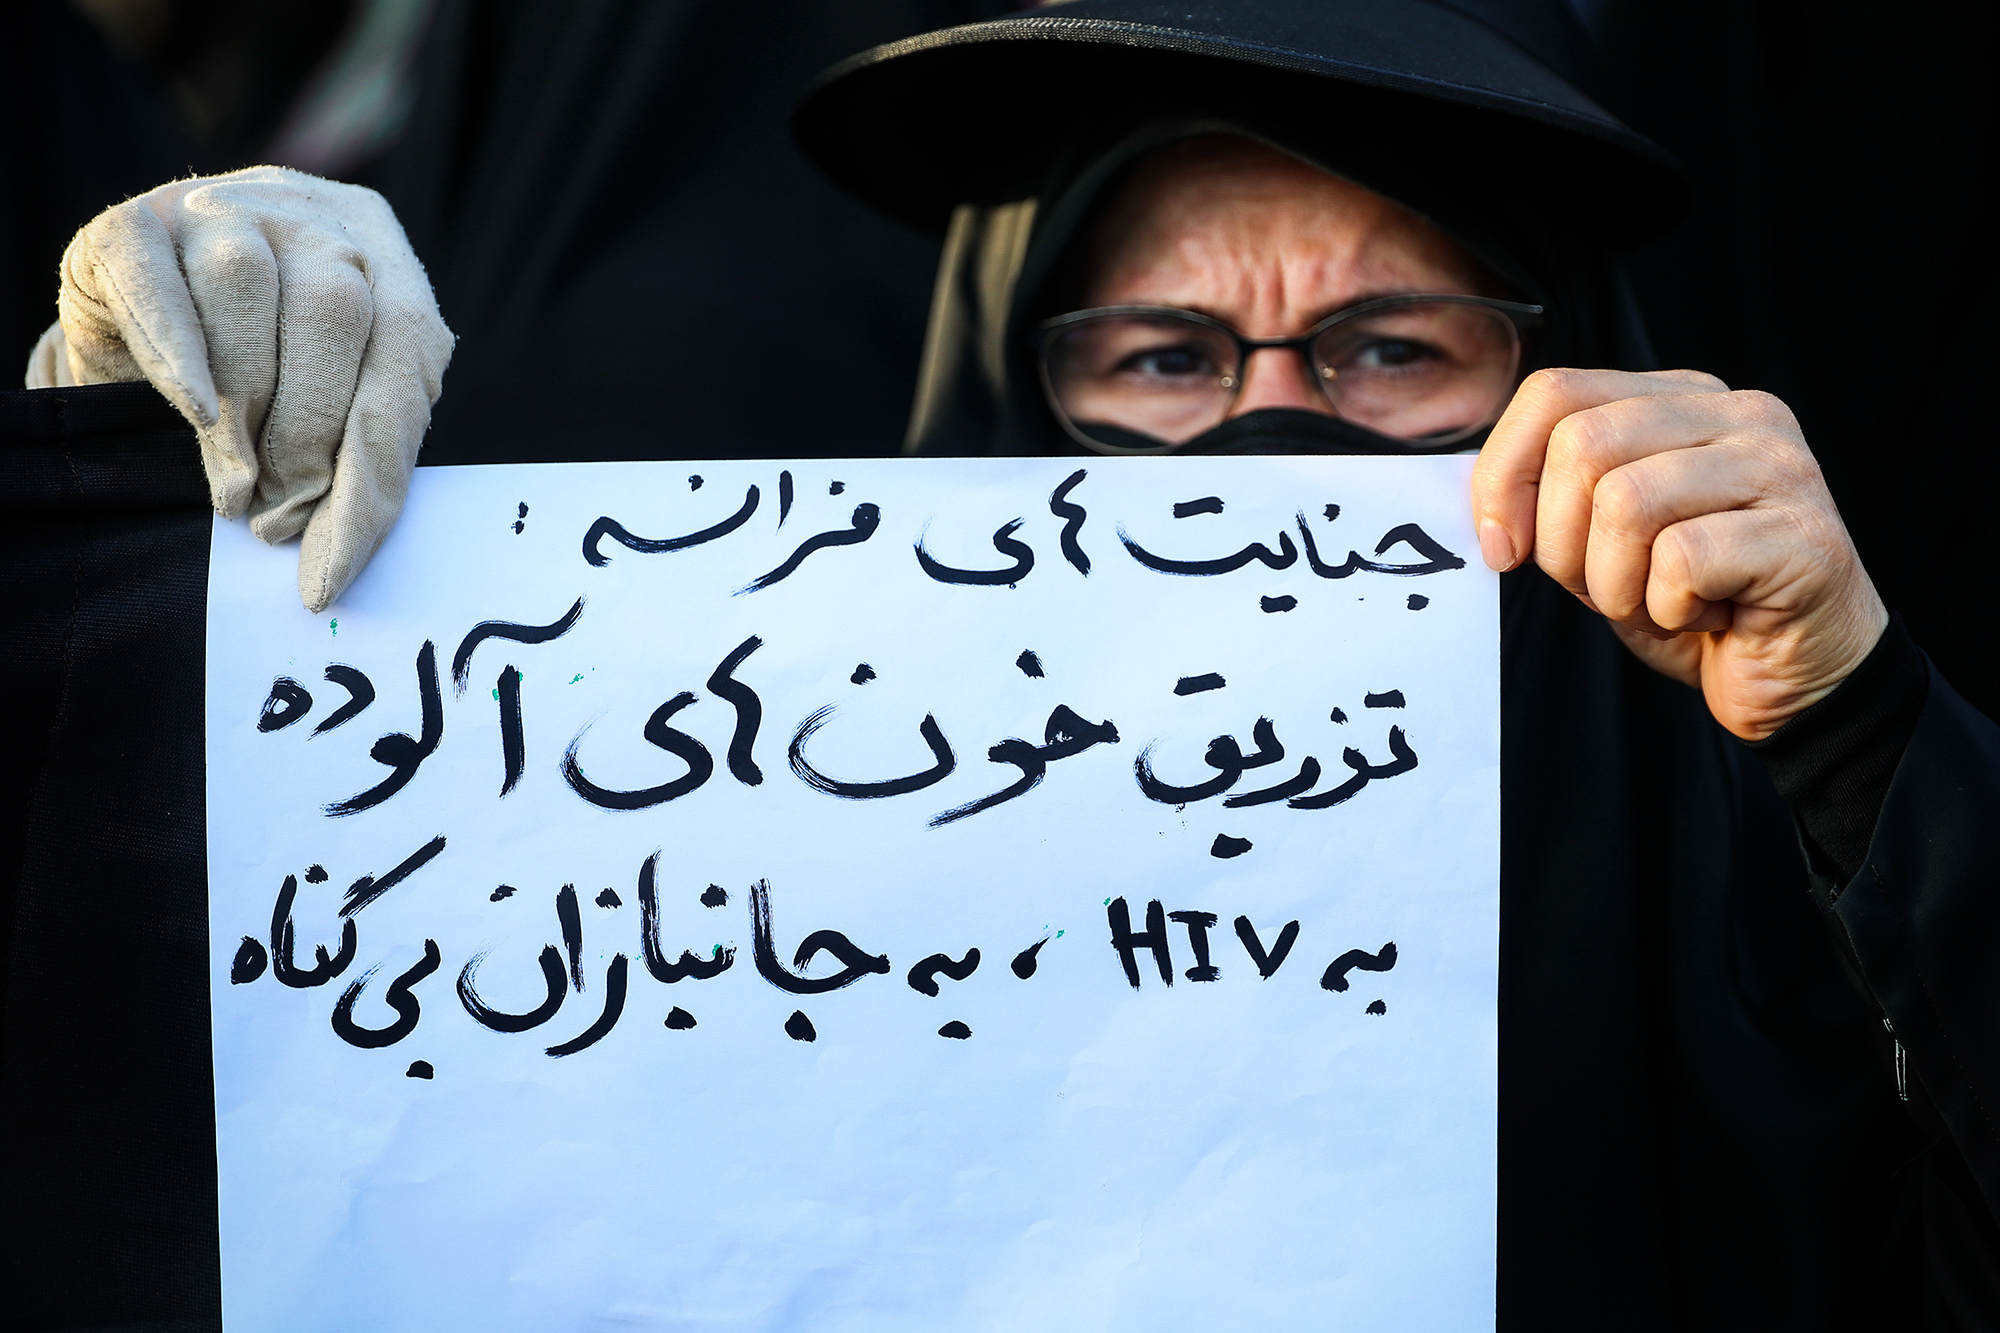 جنایت های فرانسه :
تزریق خون های آلوده
به HIV ، به جانبازان بی گناه